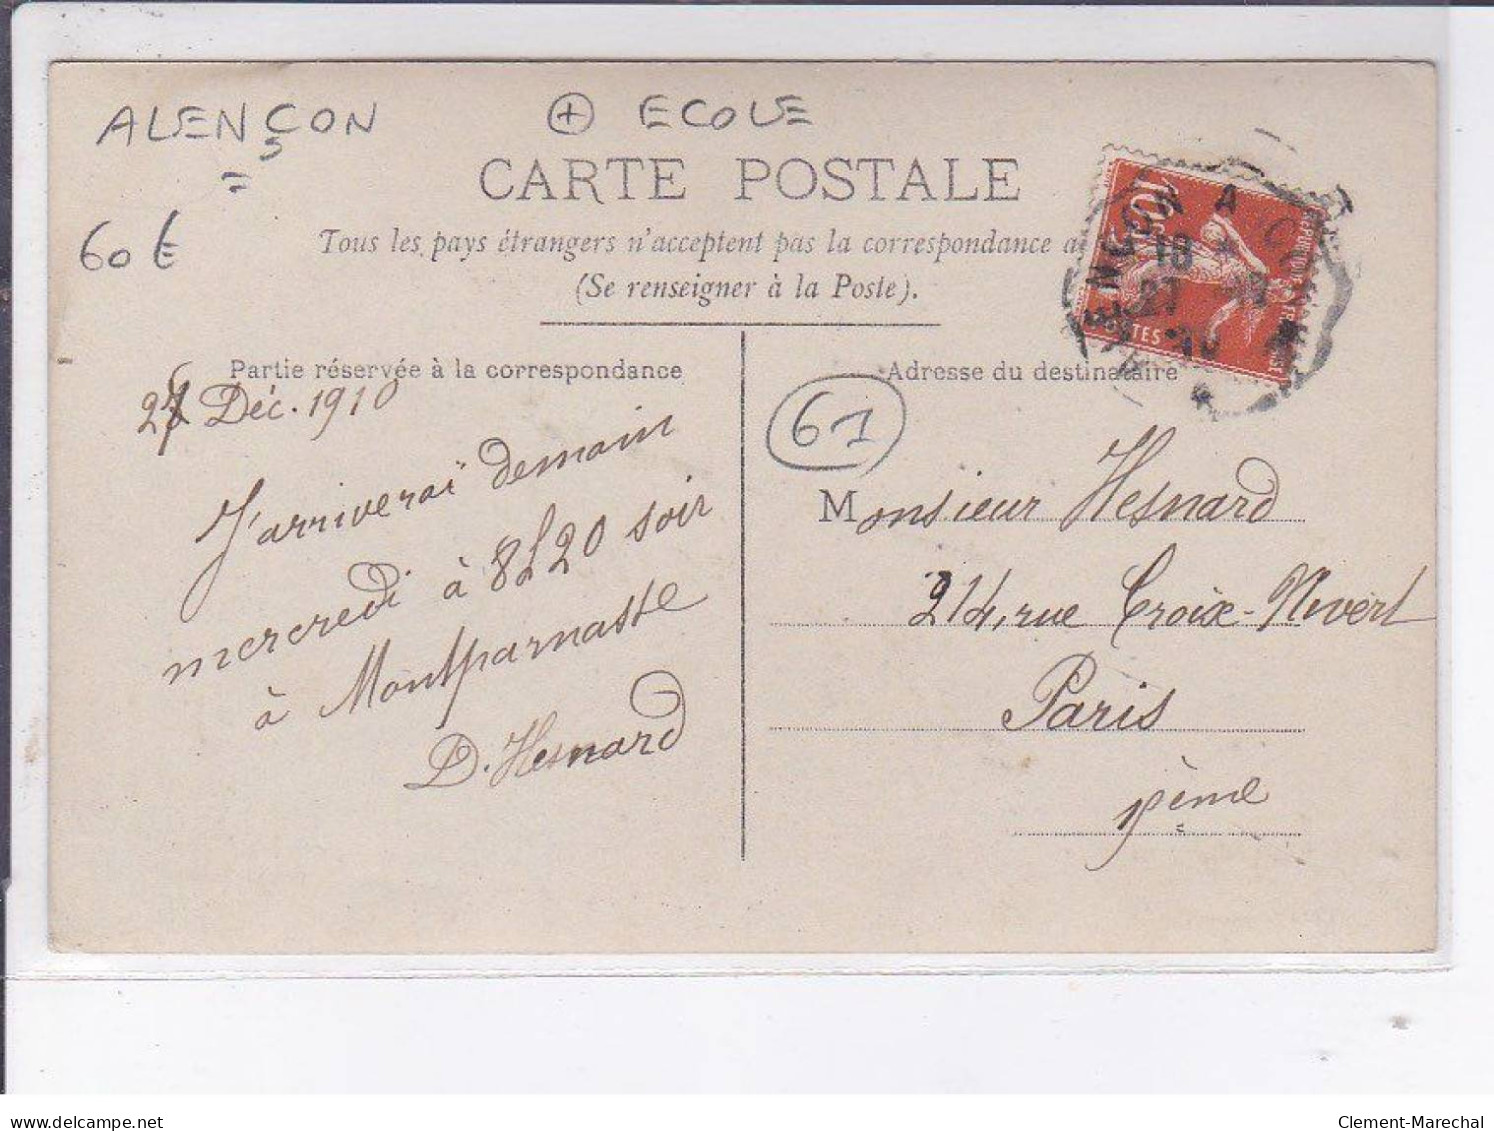 ALENÇON
+ ECOLE
60 €
CARTE POSTALE
Tous les pays étrangers n'acceptent pas la correspondance a
(Se renseigner à la Poste).
Partie réservée à la correspondance
Déc. 1910
J'arriverai demain
mercredi à 8h20 soir
à Montparnasse
D. Hesnard
Adresse du destinataire
61
Monsieur Hesnard
214, rue Croix-Nivert
Paris
10
POSTES
18
27
10
delcampe.net
Clement-Marechal